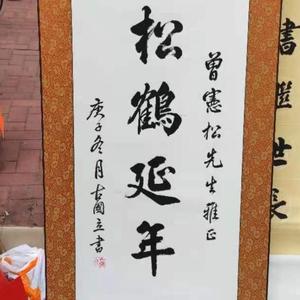 曾憲松先生雅正
松鶴延年
庚子冬月古國立書
書禮世長